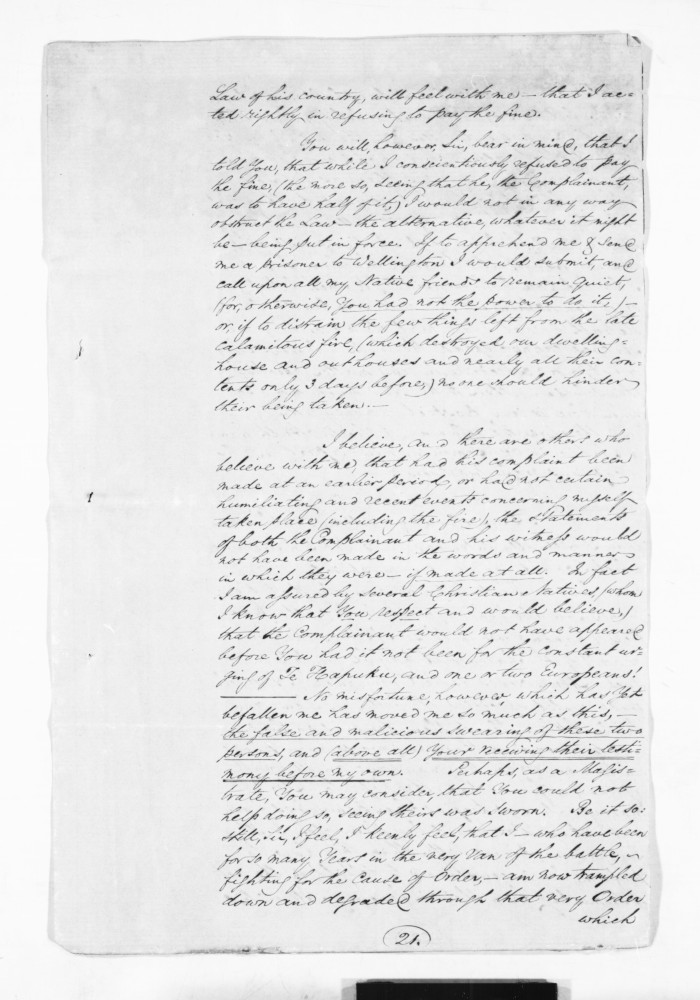 Law of his country, will feel with me – that I ac-
ted rightly in refusing to pay the fine.
You will, however, Sir, bear in mind, that I
told You, that while I conscientiously refused to pay
the fine, (the more so, seeing that he, the Complainant,
was to have half of it,) I would not in any way
obstruct the Law – the alternative, whatever it might
be – being put in force. If to apprehend me & send
me a prisoner to Wellington I would submit, and
call upon all my Native friends to remain quiet,
(for, otherwise, You had not the power to do it,) –
or, if to distrain the few things left from the late
calamitous fire, (which destroyed our dwelling-
house and outhouses and nearly all their con-
tents only 3 days before,) no one should hinder
their being taken. –
I believe, and there are others who
believe with me, that had his complaint been
made at an earlier period, or had not certain
humiliating and recent events concerning myself
taken place (including the fire), the statements
of both the Complainant and his witness would
not have been made in the words and manner
in which they were – if made at all. In fact
I am assured by several Christian Natives, (whom
I know that You respect and would believe,)
that the Complainant would not have appeared
before You had it not been for the constant ur-
ging of Te Hapuku, and one or two Europeans!
——— No misfortune, however, which has yet
befallen me has moved me so much as this, –
the false and malicious swearing of these two
persons, and (above all) Your receiving their testi-
mony before my own. Perhaps, as a Magis-
trate, You may consider, that You could not
help doing so, seeing theirs was sworn. Be it so:
still, Sir, I feel, I keenly feel, that I – who have been
for so many Years in the very van of the battle, –
fighting for the cause of Order, – am now trampled
down and degraded through that very Order
which
21.